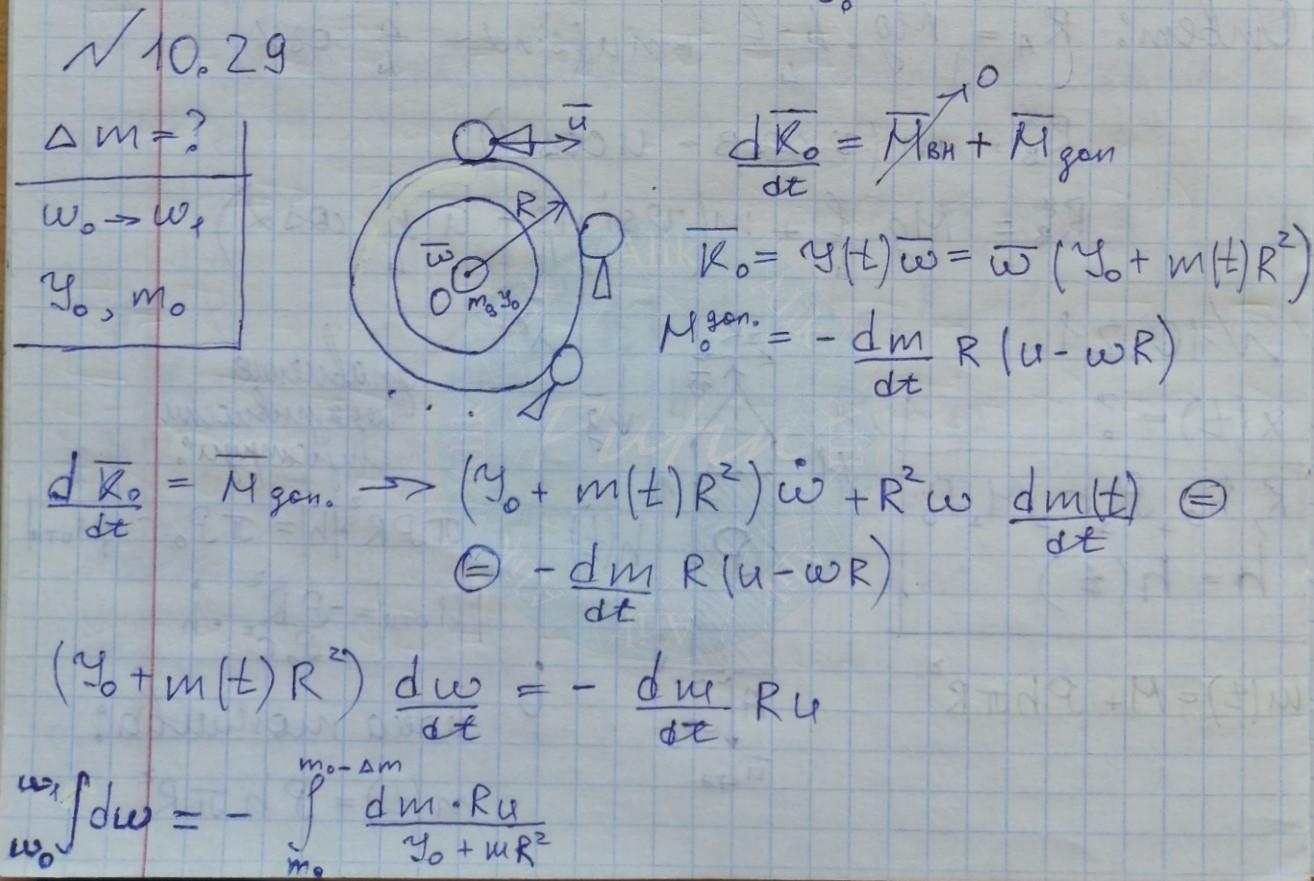 № 10.29
Δm = ?
ω₀ → ω₁
J₀, m₀
u̅
R
ω̅
O
m₀ J₀
dK̅₀/dt = M̅вн + M̅доп
0
K̅₀ = J(t)ω̅ = ω̅ (J₀ + m(t)R²)
M₀^доп. = - dm/dt R (u - ωR)
dK̅₀/dt = M̅доп. → (J₀ + m(t)R²) ω̇ + R²ω dm(t)/dt ⊜
⊜ - dm/dt R (u - ωR)
(J₀ + m(t)R²) dω/dt = - dm/dt Ru
∫_{ω₀}^{ω₁} dω = - ∫_{m₀}^{m₀-Δm} dm·Ru / (J₀ + mR²)